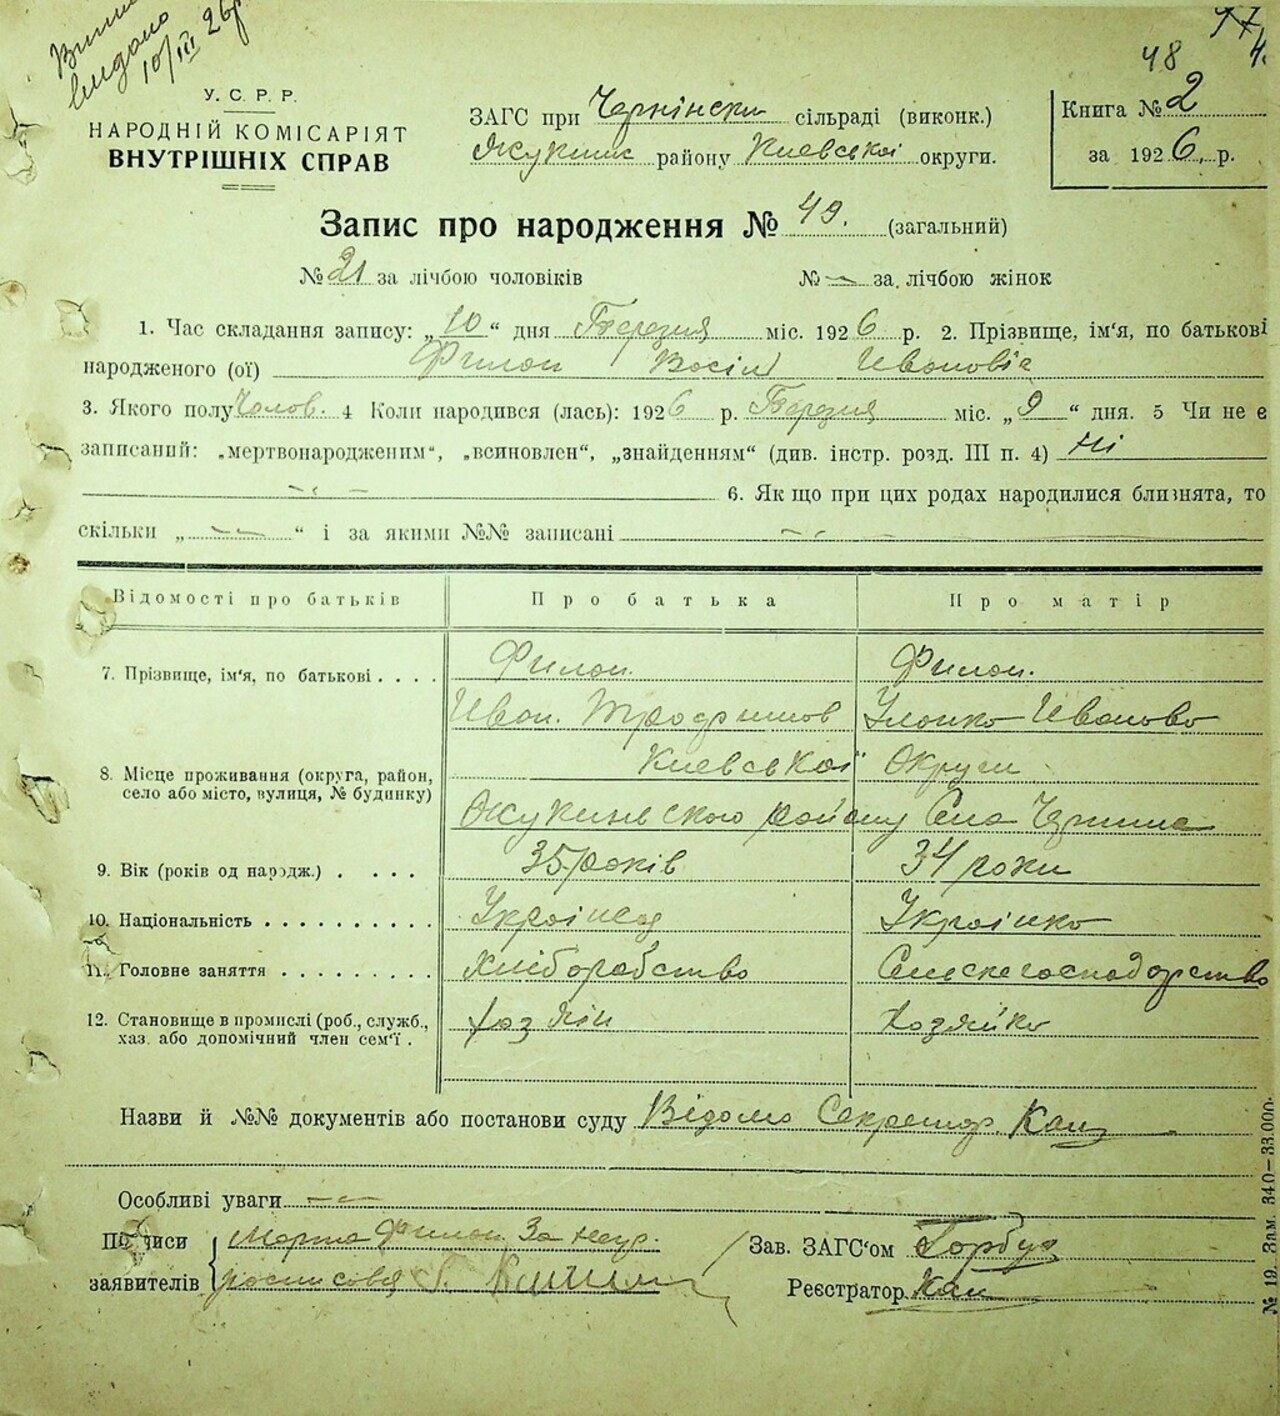 видано
10/III 26р
48
У. С. Р. Р.
НАРОДНІЙ КОМІСАРІЯТ
ВНУТРІШНІХ СПРАВ
ЗАГС при Чернінскій сільраді (виконк.)
району Киевської округи.
Книга № 2
за 1926, р.
Запис про народження № 49. (загальний)
№ 21 за лічбою чоловіків № — за лічбою жінок
1. Час складання запису: „10“ дня Березня міс. 1926 р. 2. Прізвище, ім'я, по батькові
народженого (ої) Филон Восіль Ивановіч
3. Якого полу Чолов. 4 Коли народився (лась): 1926 р. Березня міс. „9“ дня. 5 Чи не є
записаний: „мертвонародженим“, „всиновлен“, „знайденням“ (див. інстр. розд. III п. 4) Ні
6. Як що при цих родах народилися близнята, то
скільки „ — — “ і за якими №№ записані — —
Відомості про батьків Про батька Про матір
7. Прізвище, ім'я, по батькові . . . . Филон. Филон.
Иван. Трофимов Улонко Иваново
8. Місце проживання (округа, район, село або місто, вулиця, № будинку) Киевської Округи
Жукиневского району Села Чернина
9. Вік (років од народж.) . . . . 35 років 34 роки
10. Національність . . . . . . . . . . Українец Українко
11. Головне заняття . . . . . . . . . Хліборобство Сельскегосподорство
12. Становище в промислі (роб., служб., хаз. або допомічний член сем'ї . хозяін Хозяйко
Назви й №№ документів або постанови суду Відомо Секретор. Кац
Особливі уваги — —
Підписи Марта Филон За неур.
заявителів росписовся Г.
Зав. ЗАГС'ом Горбуз
Реєстратор Кац
№ 19. Зам. 340—33.000.